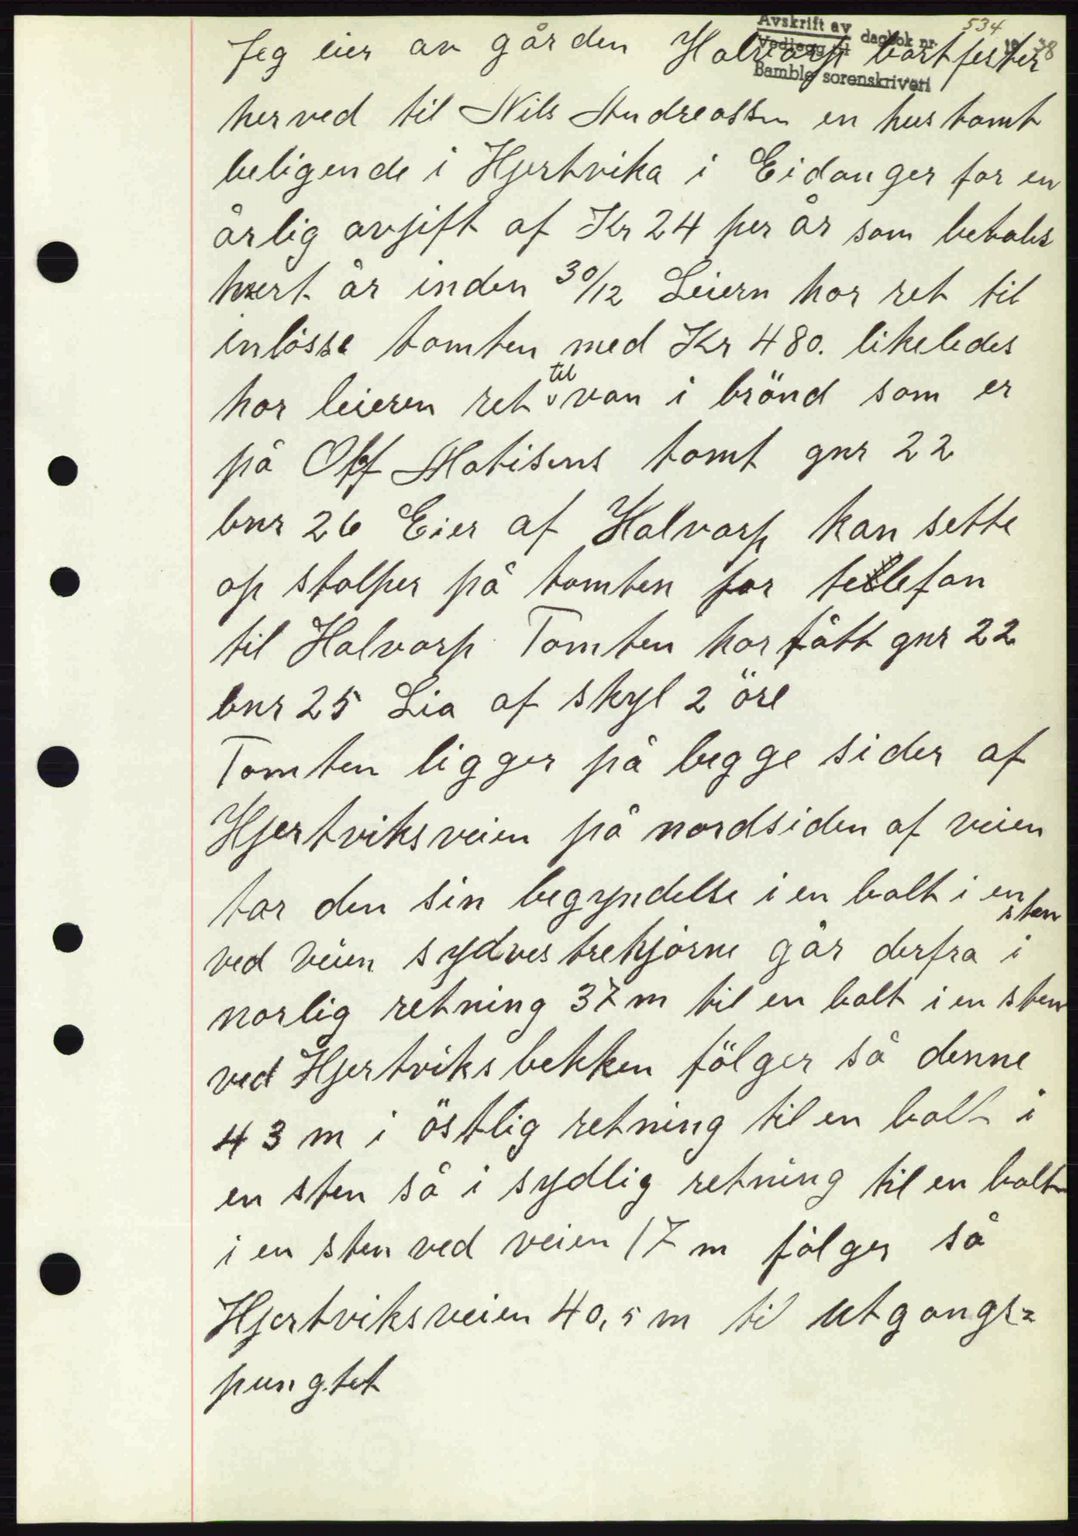 Avskrift av
Vedlegg til dagbok nr. 534 1938
Bamble sorenskriveri
Jeg eier av gården Halvarp bortfester
herved til Nils Andreassen en hustomt
beligende i Hjertvika i Eidanger for en
årlig avjift af Kr 24 per år som betales
hvert år inden 30/12 Leiern har ret til
inløsse tomten med Kr 480. likeledes
har leieren ret til van i brönd som er
på Olf Matisens tomt gnr 22
bnr 26 Eier af Halvarp kan sette
op stolper på tomten for tellefon
til Halvarp Tomten har fått gnr 22
bnr 25 Lia af skyl 2 öre
Tomten ligger på begge sider af
Hjertviksveien på nordsiden af veien
tar den sin begyndelse i en bolt i en sten
ved veien sydvestrehjørne går derfra i
norlig retning 37 m til en bolt i en sten
ved Hjertviksbekken fölger så denne
43 m i östlig retning til en bolt i
en sten så i sydlig retning til en bolt
i en sten ved veien 17 m følger så
Hjertviksveien 40,5 m til utgangs=
pungtet